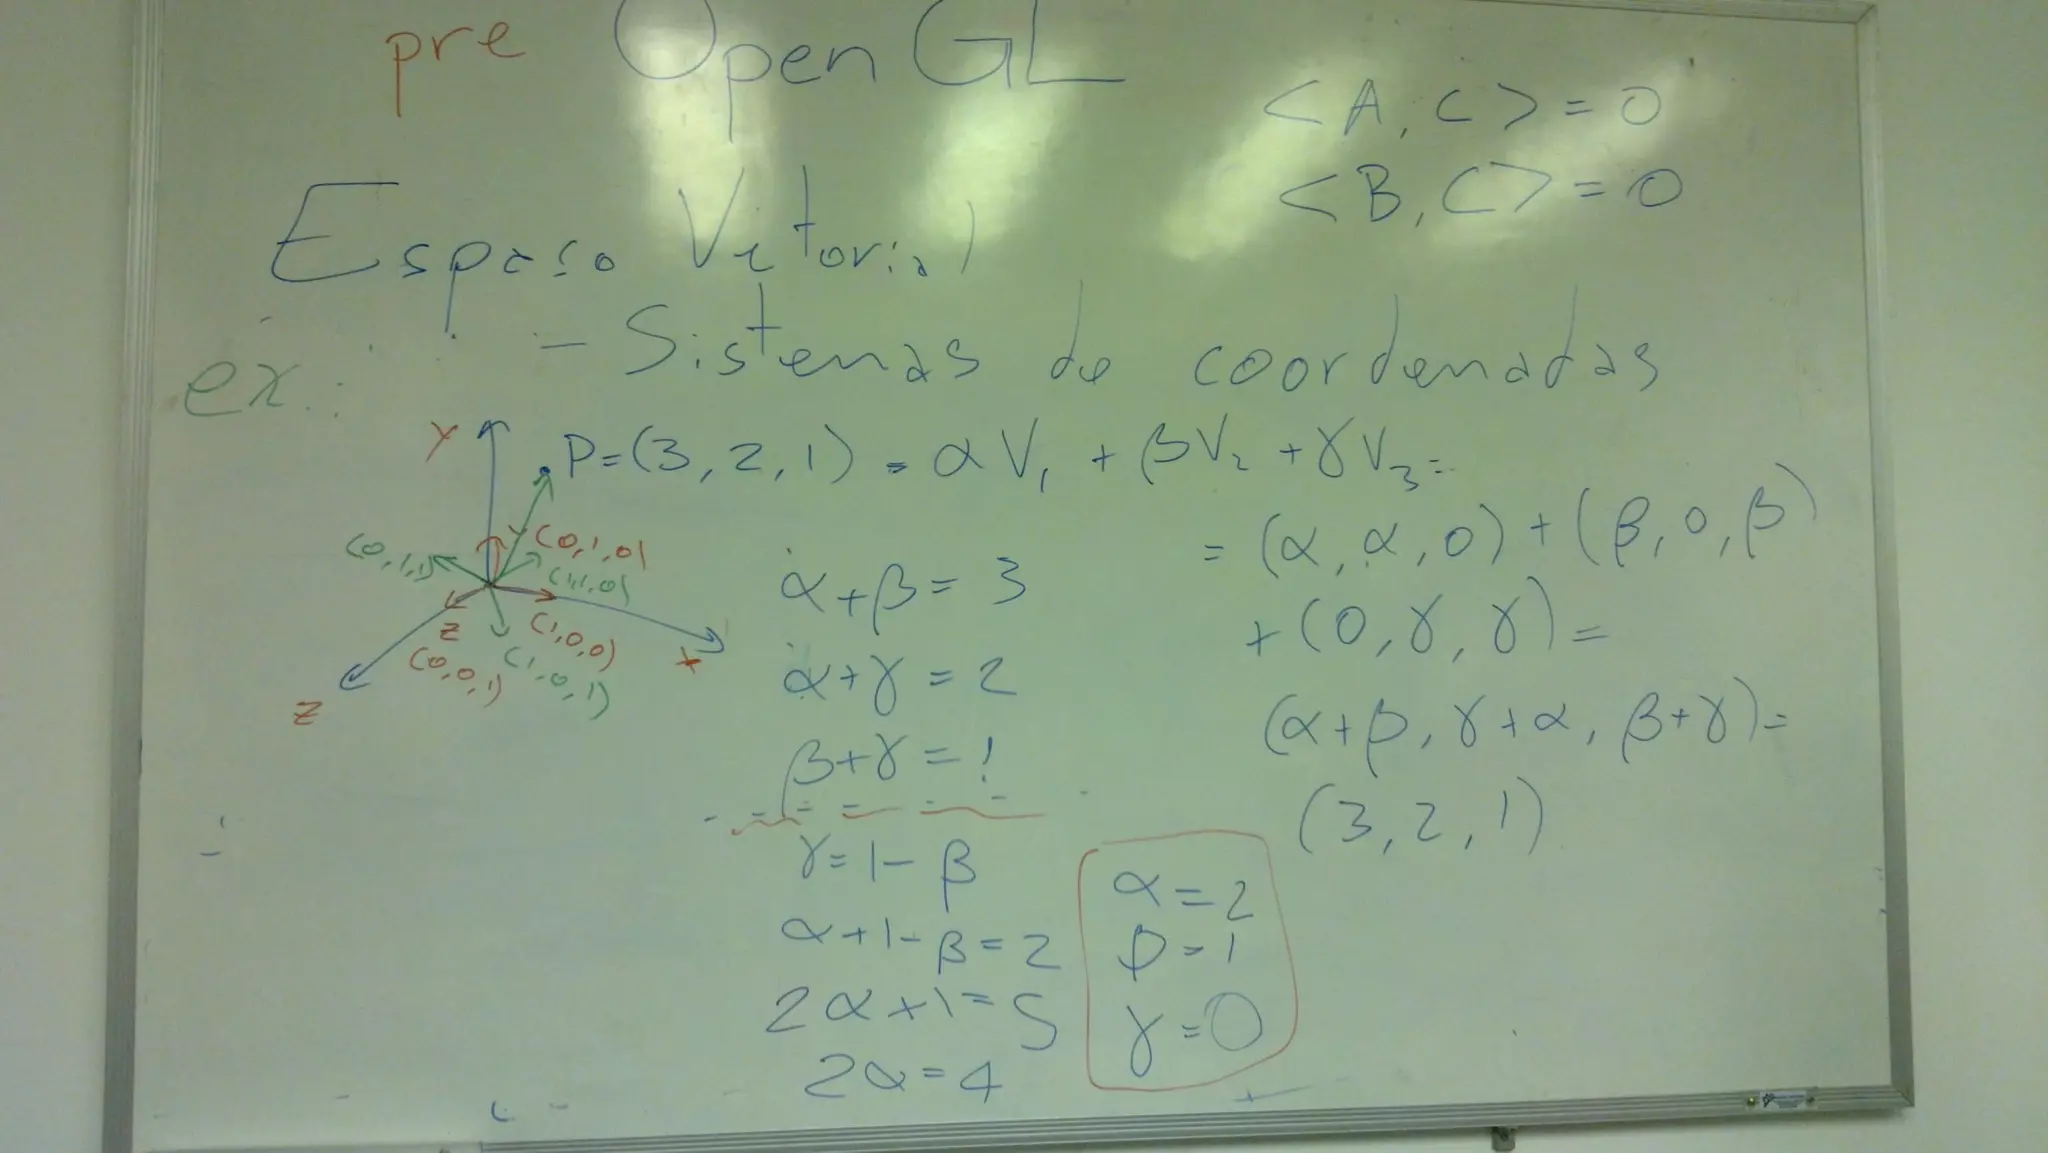 pre OpenGL
<A, C> = 0
<B, C> = 0
Espaso Vetorial
- Sistemas de coordenadas
ex.:
P=(3, 2, 1) = αV₁ + βV₂ + γV₃ =
= (α, α, 0) + (β, 0, β)
+ (0, γ, γ) =
(α+β, γ+α, β+γ) =
(3, 2, 1)
Y
(0,1,1)
Y (0,1,0)
(1,1,0)
(1,0,0)
X
Z
(0,0,1)
(1,0,1)
Z
α+β = 3
α+γ = 2
β+γ = 1
γ = 1-β
α+1-β = 2
2α+1 = 5
2α = 4
α = 2
β = 1
γ = 0